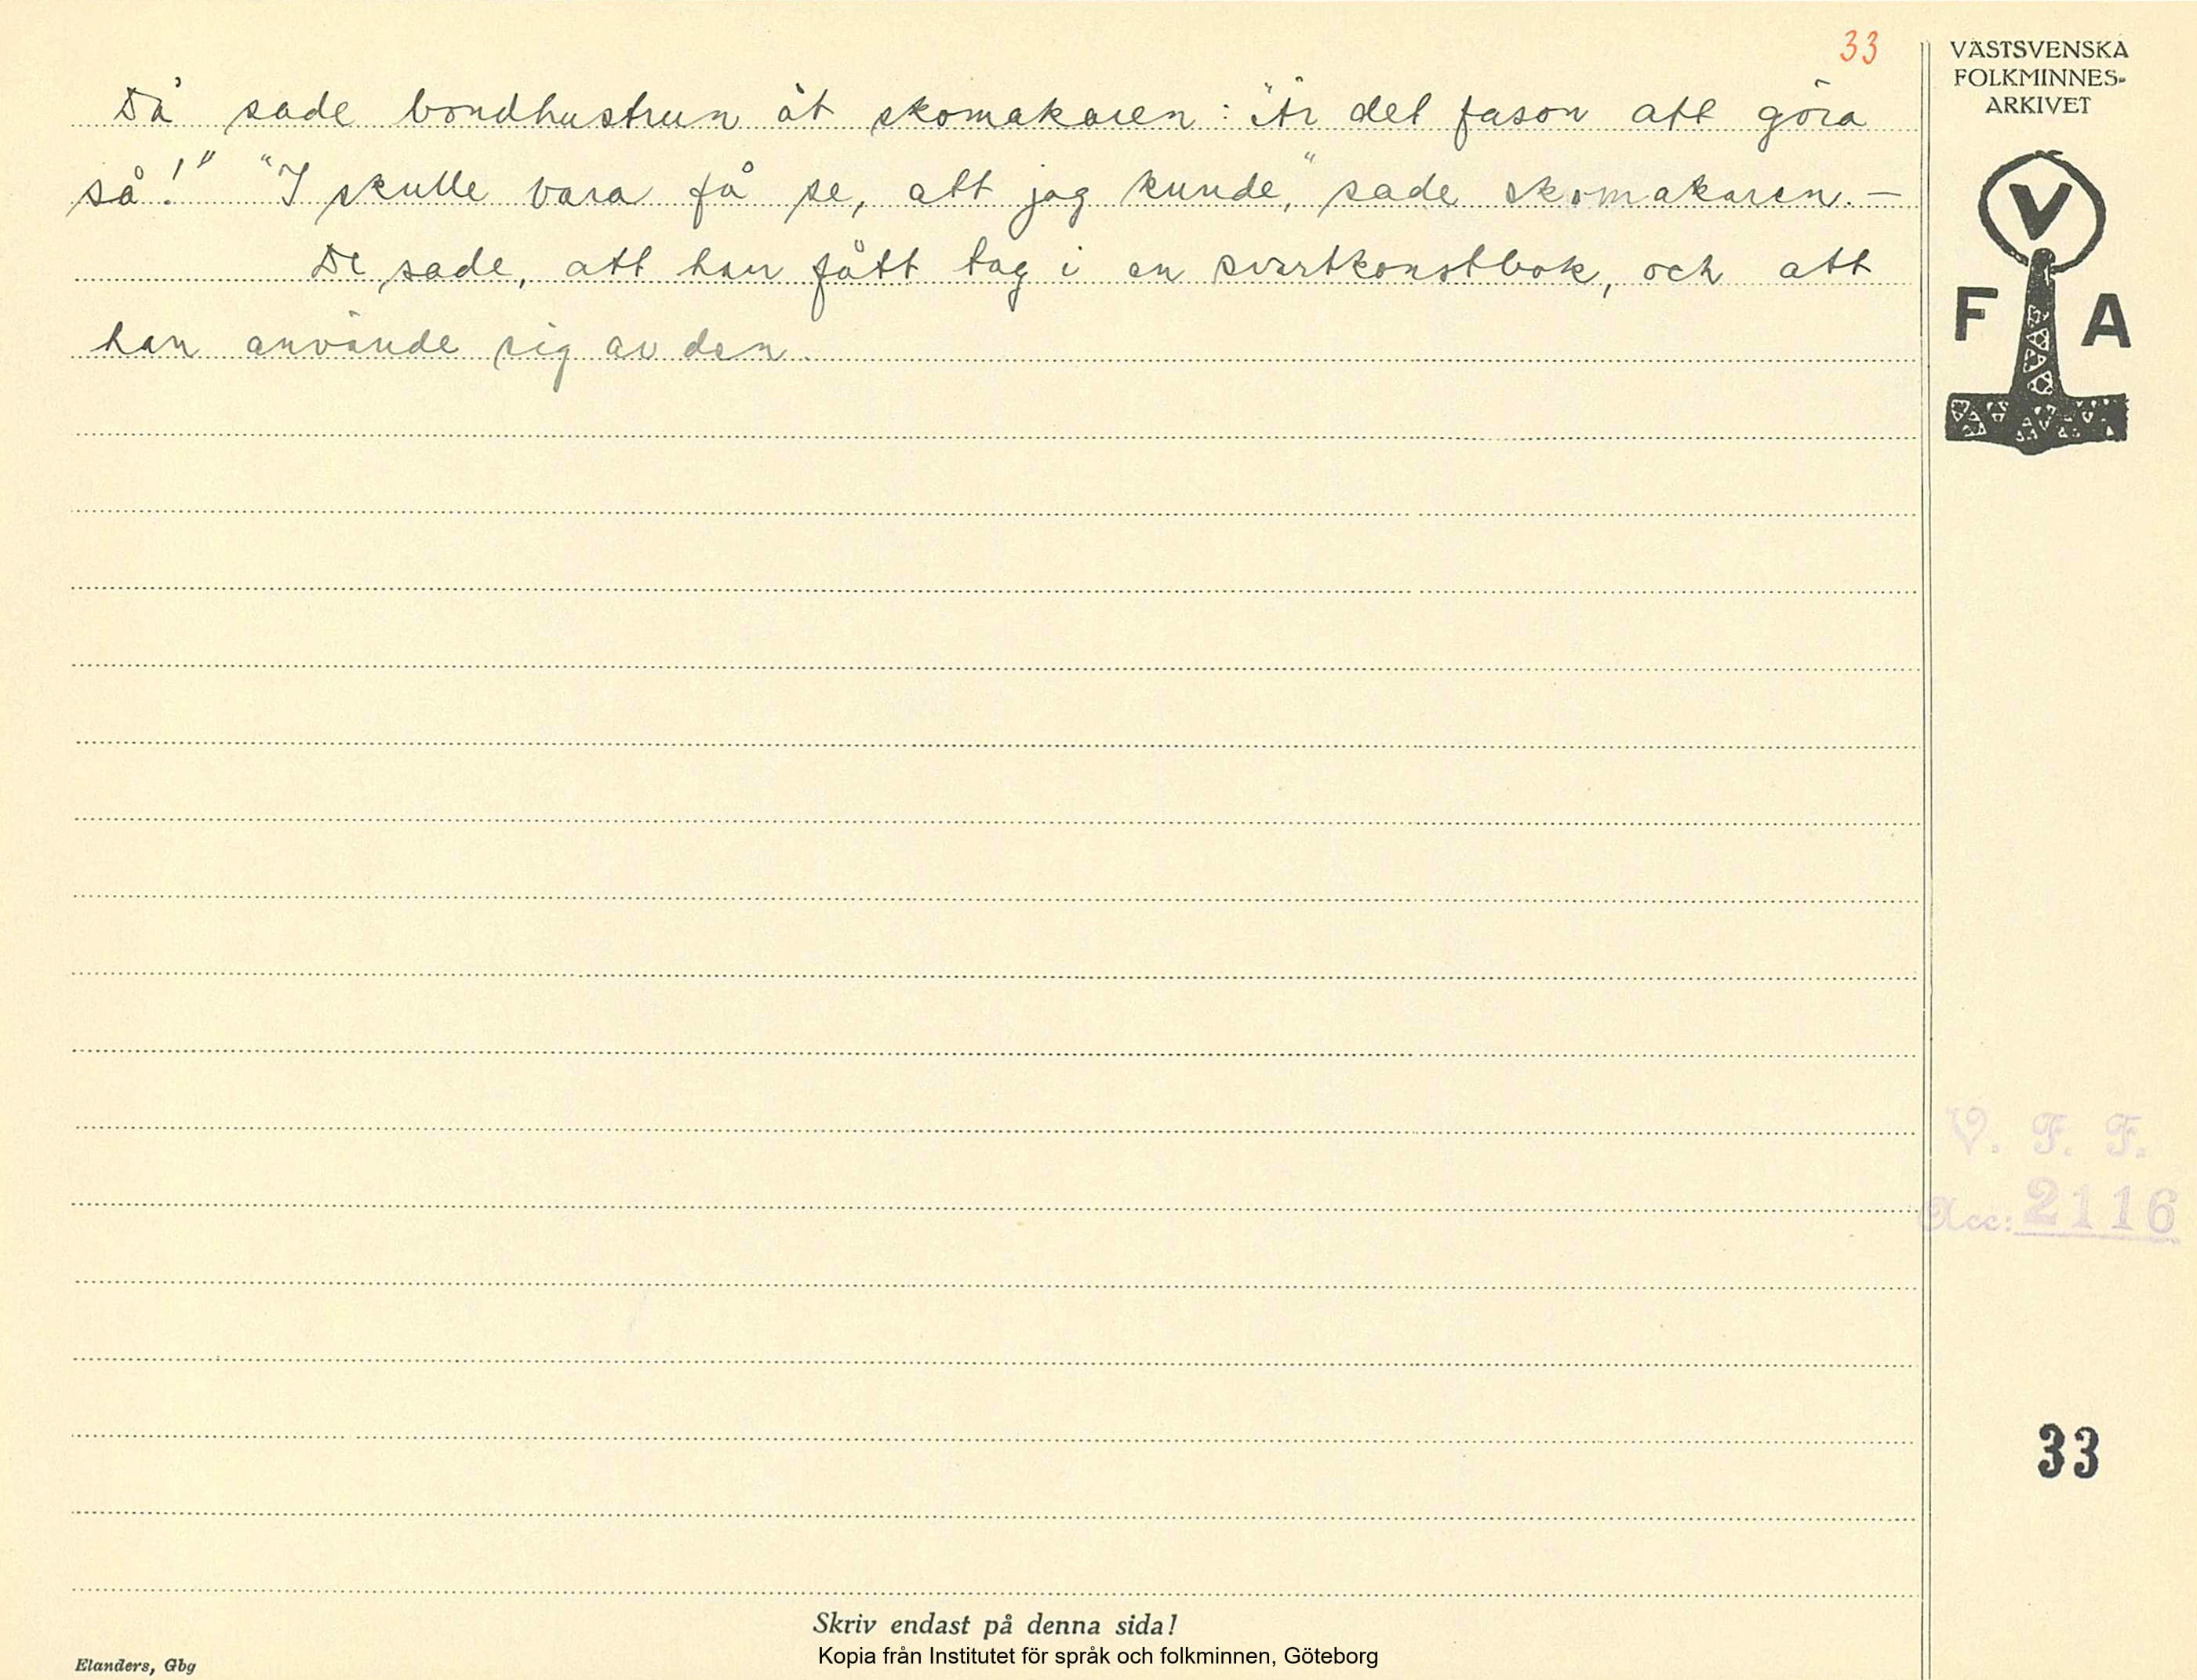 33
Då sade bondhustrun åt skomakaren: "Är det fason att göra
så!" "I skulle vara få se, att jag kunde," sade skomakaren. –
De sade, att han fått tag i en svartkonstbok, och att
han använde sig av den.
VÄSTSVENSKA
FOLKMINNES-
ARKIVET
V
F A
V. F. F.
Acc: 2116
33
Skriv endast på denna sida!
Kopia från Institutet för språk och folkminnen, Göteborg
Elanders, Gbg